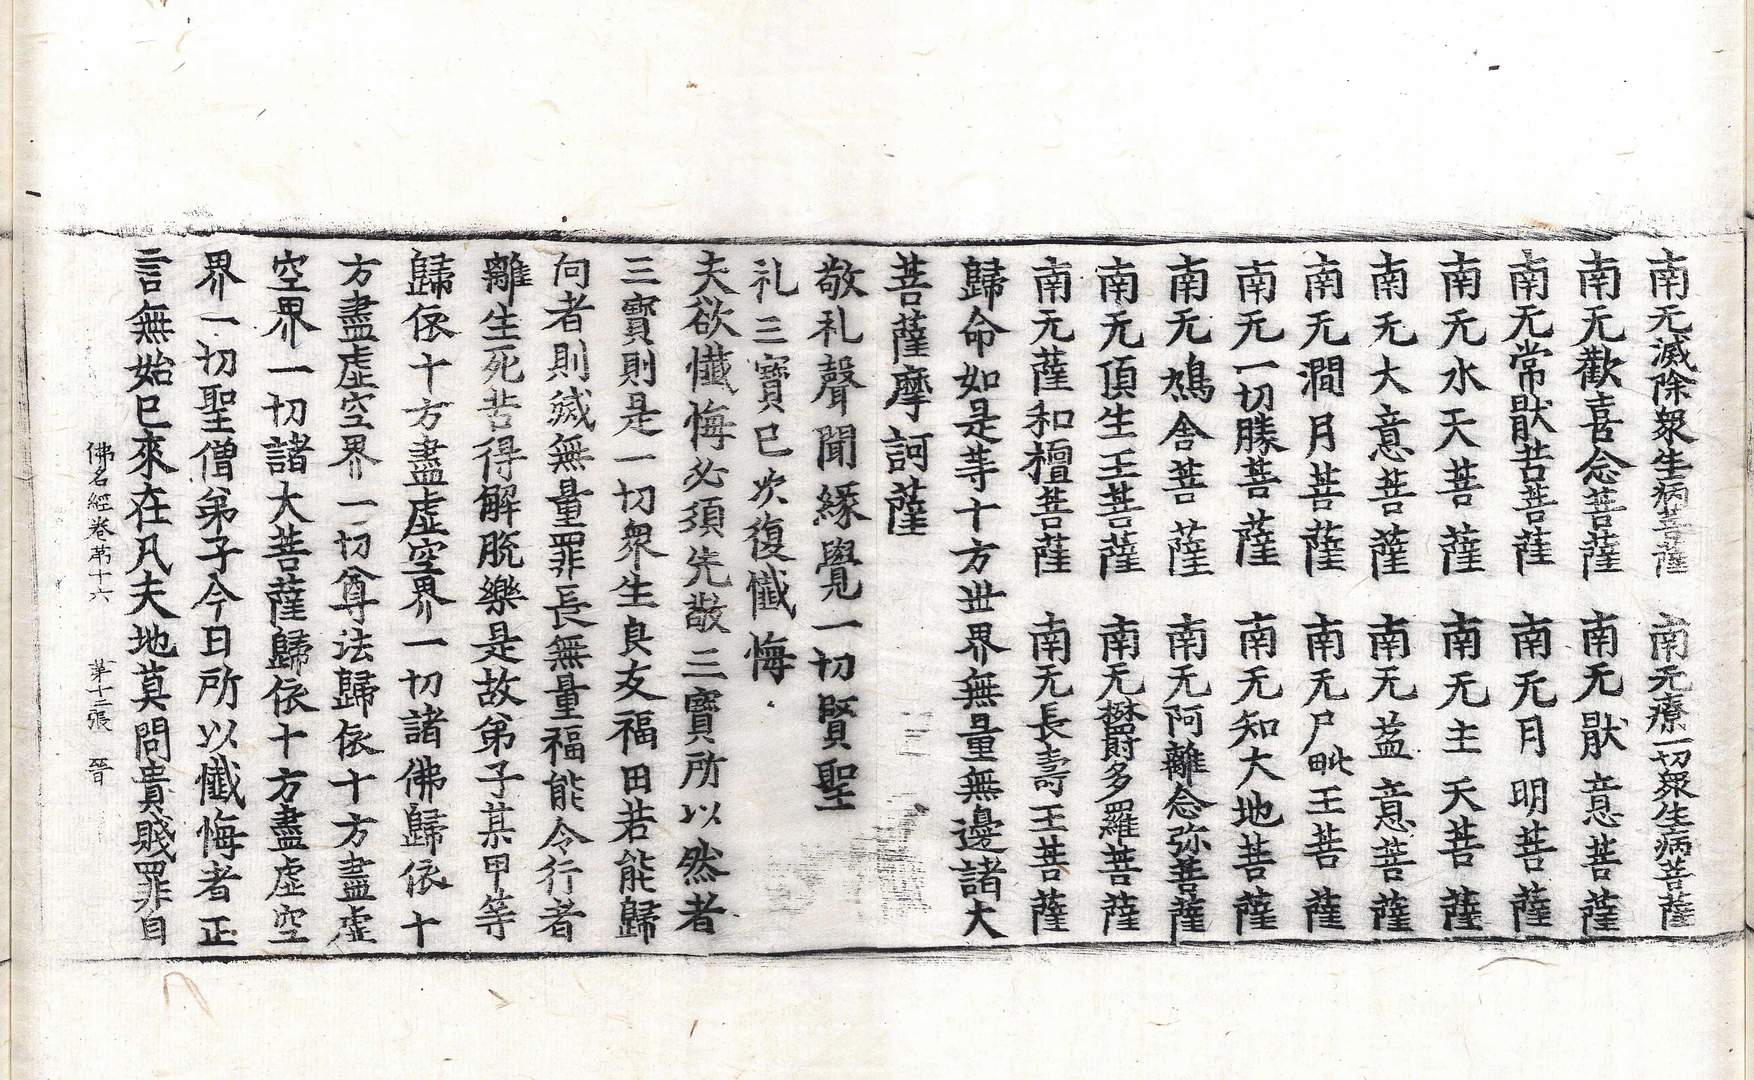 南无滅除衆生病菩薩 南无療一切衆生病菩薩
南无歡喜念菩薩 南无猒意菩薩
南无常猒苦菩薩 南无月明菩薩
南无水天菩薩 南无主天菩薩
南无大意菩薩 南无葢意菩薩
南无澗月菩薩 南无尸毗王菩薩
南无一切勝菩薩 南无知大地菩薩
南无鳩舍菩薩 南无阿離念弥菩薩
南无頂生王菩薩 南无欝多羅菩薩
南无薩和檀菩薩 南无長壽王菩薩
歸命如是等十方世界無量無邊諸大
菩薩摩訶薩
敬礼聲聞緣覺一切賢聖
礼三寶已次復懺悔
夫欲懺悔必須先敬三寶所以然者
三寶則是一切衆生良友福田若能歸
向者則滅無量罪長無量福能令行者
離生死苦得解脫樂是故弟子某甲等
歸依十方盡虛空界一切諸佛歸依十
方盡虛空界一切尊法歸依十方盡虛
空界一切諸大菩薩歸依十方盡虛空
界一切聖僧弟子今日所以懺悔者正
言無始已來在凡夫地莫問貴賤罪自
佛名經卷第十六 第十二張 晉